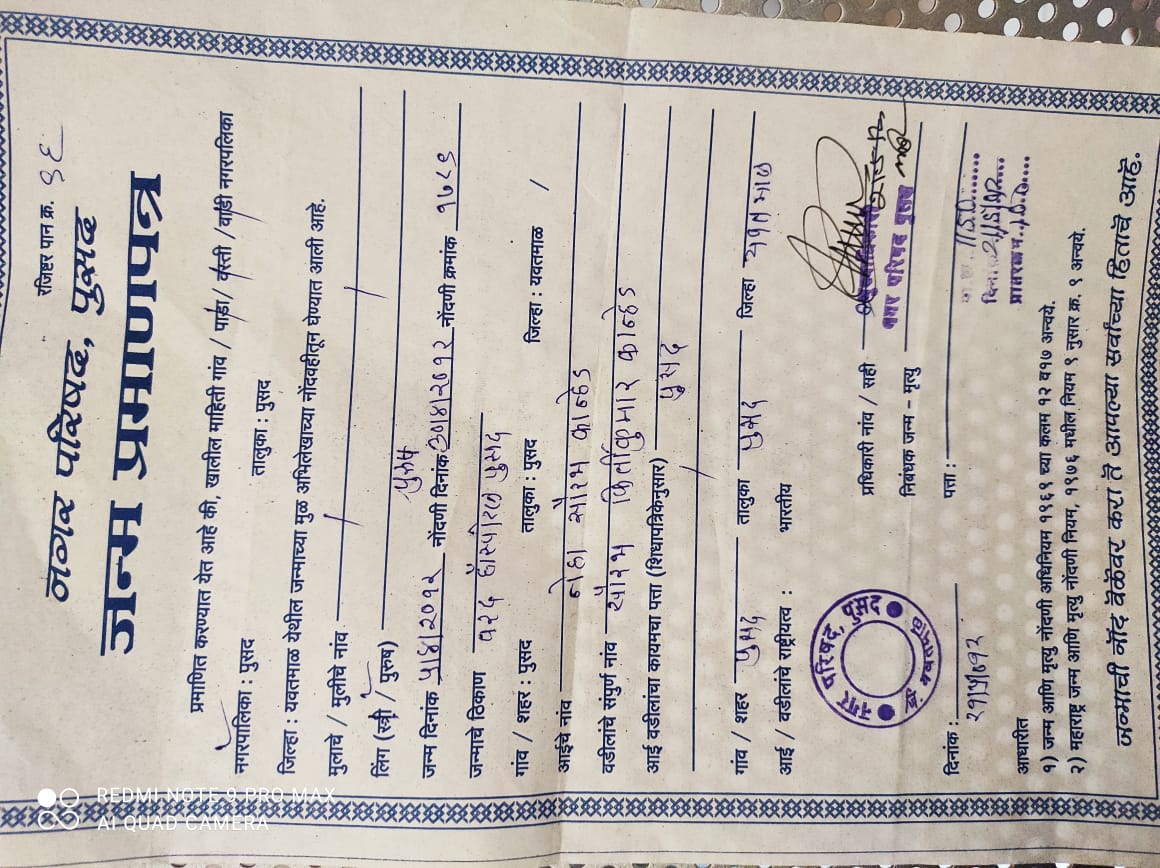 रजिष्टर पान क्र. ९६
नगर परिषद, पुसद
जन्म प्रमाणपत्र
प्रमाणित करण्यात येत आहे की, खालील माहिती गांव / पाडा / वस्ती / वाडी नगरपालिका
नगरपालिका : पुसद तालुका : पुसद
जिल्हा : यवतमाळ येथील जन्माच्या मुळ अभिलेखाच्या नोंदवहीतून घेण्यात आली आहे.
मुलाचे / मुलीचे नांव
लिंग (स्त्री / पुरुष) पुरुष
जन्म दिनांक ५/४/२०१२ नोंदणी दिनांक ३०/४/२०१२ नोंदणी क्रमांक १७८९
जन्माचे ठिकाण वरद हॉस्पीटल पुसद
गांव / शहर : पुसद तालुका : पुसद जिल्हा : यवतमाळ /
आईचे नांव नेहा सौरभ कान्हेड
वडीलांचे संपुर्ण नांव सौरभ किर्तीकुमार कान्हेड
आई वडीलांचा कायमचा पत्ता (शिधापत्रिकेनुसार) पुसद
गांव / शहर पुसद तालुका पुसद जिल्हा यवतमाळ
आई / वडीलांचे राष्ट्रीयत्व : भारतीय
प्राधिकारी नांव / सही
निबंधक जन्म – मृत्यु
नगर परिषद पुसद
नगर परिषद, पुसद
दिनांक : पत्ता :
आधारीत
१) जन्म आणि मृत्यु नोंदणी अधिनियम १९६९ च्या कलम १२ व १७ अन्वये.
२) महाराष्ट्र जन्म आणि मृत्यु नोंदणी नियम, १९७६ मधील नियम ९ नुसार क्र. ९ अन्वये.
जन्माची नोंद वेळेवर करा ते आपल्या सर्वांच्या हिताचे आहे.
REDMI NOTE 9 PRO MAX
AI QUAD CAMERA